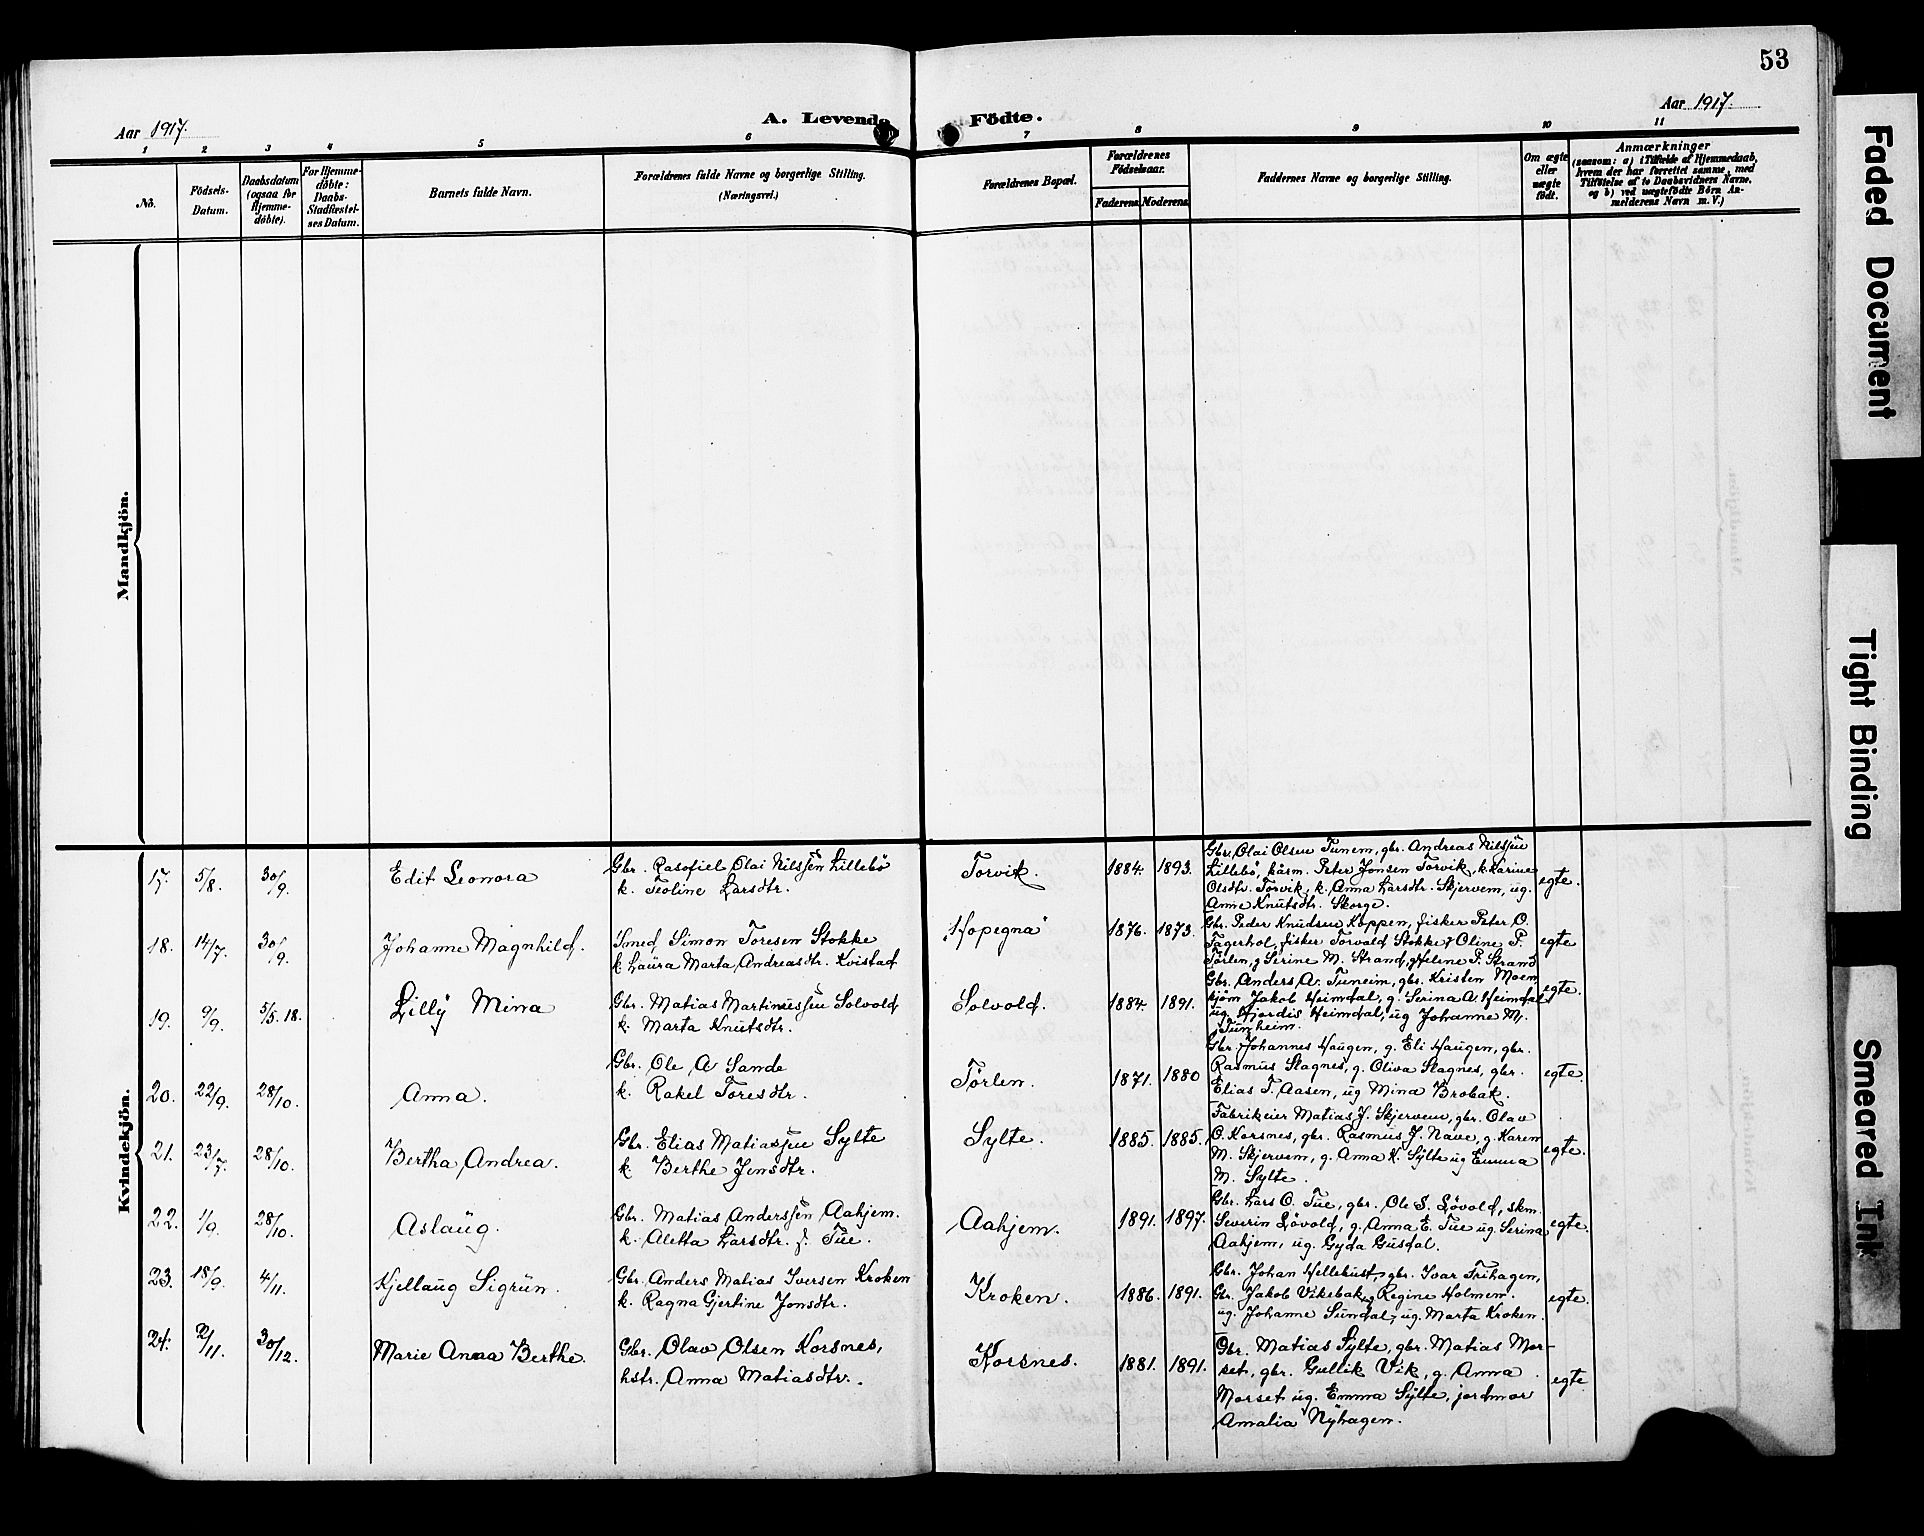 53
Aar 1917.
A. Levende Fødte.
Aar 1917.
1 2 3 4 5 6 7 8 9 10 11
No.
Fødsels-
Datum.
Daabsdatum
(ogsaa for
Hjemme-
døbte).
For Hjemme-
døbte:
Daabs-
Stadfæstel-
ses Datum.
Barnets fulde Navn.
Forældrenes fulde Navne og borgerlige Stilling.
(Næringsvei.)
Forældrenes Bopæl.
Forældrenes
Fødselsaar.
Faderens. Moderens.
Faddernes Navne og borgerlige Stilling.
Om ægte
eller
uægte
født.
Anmærkninger
(saasom: a) i Tilfælde af Hjemmedaab,
hvem der har forrettet samme, med
Tilføielse af to Daabsvidners Navne,
og b) ved uægtefødte Børn An-
melderens Navn m. V.)
Mandkjön.
Kvindekjön.
17. 5/8. 30/9. Edit Leonora
Gbr. Rasofiel Olai Nilssen Lillebö
k. Teoline Larsdtr.
Torvik. 1884. 1893.
Gbr. Olai Olsen Tunem, gbr. Andreas Nilssen
Lillebö, kåsm. Peter Jonsen Torvik, k. Karine
Olsdtr. Torvik, k. Anna Larsdtr. Skjervem, ug.
Anne Knutsdtr. Skorge.
egte.
18. 14/7. 30/9. Johanne Magnhild.
Smed Simon Toresen Stokke
k. Laura Marta Andreasdtr. Kvistad
"Hopegna" 1876. 1873.
Gbr. Peder Knudsen Koppen, fisker Peter O.
Fagerhol, fisker Torvald Stokke, g Oline P.
Törlen, g Serine M. Strand, g Helene P. Strand
egte
19. 9/9. 5/5. 18. Lilly Mina
Gbr. Matias Martinussen Solvold
k. Marta Knutsdtr.
Solvold. 1884. 1891.
Gbr. Anders A. Tuneim, gbr. Kristen Moen
kjöm Jakob Heimdal, g. Serina A. Heimdal
ug. Hjordis Heimdal, ug Johanne M.
Tunheim.
egte.
20. 22/9. 28/10. Anna.
Gbr. Ole A Sande
k. Rakel Toresdtr.
Törlen. 1871. 1880
Gbr. Johannes Haugen, g. Eli Haugen, gbr.
Rasmus Slagnes, g. Oliva Slagnes, gbr.
Elias T. Aasen, ug Mina Brobak.
egte.
21. 23/7. 28/10. Bertha Andrea.
Gbr. Elias Matiassen Sylte
k. Berthe Jensdtr.
Sylte. 1885. 1885.
Fabrikeier Matias J. Skjervem, gbr. Olav
O. Korsnes, gbr. Rasmus J. Nave, g. Karen
M. Skjervem, g. Anna K. Sylte ug Emma
M. Sylte.
egte.
22. 1/9. 28/10. Aslaug.
Gbr. Matias Anderssen Aahjem.
k. Aletta Larsdtr. f. Tue.
Aahjem. 1891. 1897.
Gbr. Lars O. Tue, gbr. Ole S. Lövold, skm.
Severin Lövold, g. Anna E. Tue ug. Serina
Aahjem, ug. Gyda Gusdal.
egte.
23. 18/9. 4/11. Kjellaug Sigrun.
Gbr. Anders Matias Iversen Kroken
k. Ragna Gjertine Jonsdtr.
Kroken. 1886. 1891.
Gbr. Johan Hellebust, gbr. Ivar Trihagen,
Gbr. Jakob Vikebak, g Regine Holmen.
ug. Johanne Sundal, ug. Marta Kroken.
egte.
24. 2/11. 30/12. Marie Anna Berthe.
Gbr. Olav Olsen Korsnes,
hstr. Anna Matiasdtr.
Korsnes. 1881. 1891.
Gbr. Matias Sylte, gbr. Matias Mor-
set, gbr. Gullik Vik, g. Anna
Morset ug. Emma Sylte, jordmor
Amalia Nyhagen.
egte
Faded Document
Tight Binding
Smeared Ink